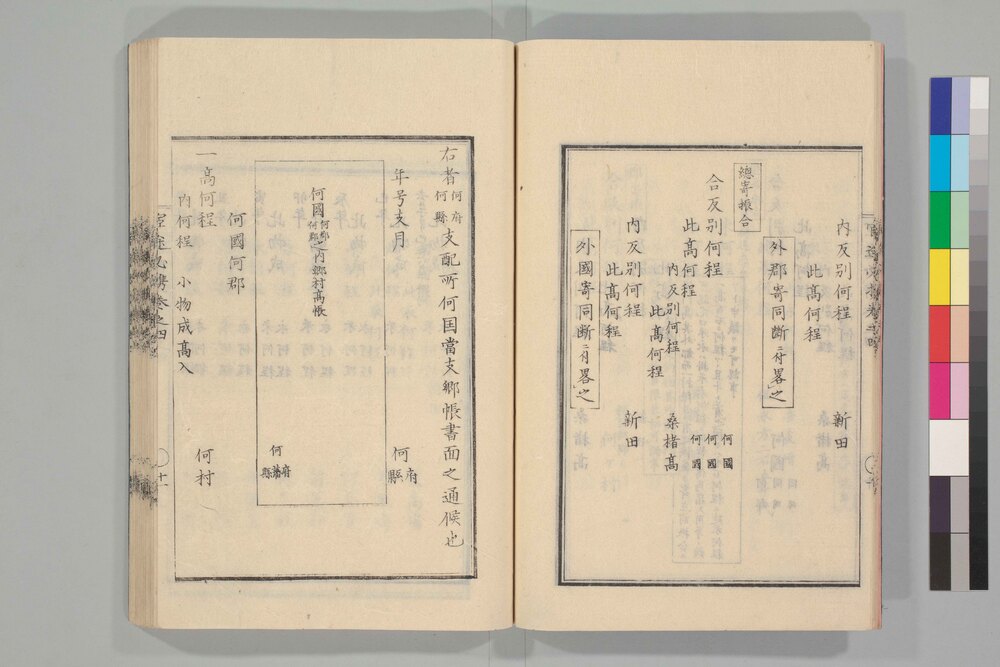 内反別何程 新田
此高何程
外郡寄同断ニ付畧之
總寄振合
合反別何程 何國 何國 何國
此高何程
内反別何程 桑楮高
此高何程
内反別何程 新田
此高何程
外國寄同断ニ付畧之
右者何府何縣支配所何国當支郷帳書面之通候也
年号支月 何府縣
何國何郡何郡之内郷村高帳
何府藩縣
何國何郡
一高何程 何村
内何程 小物成高入